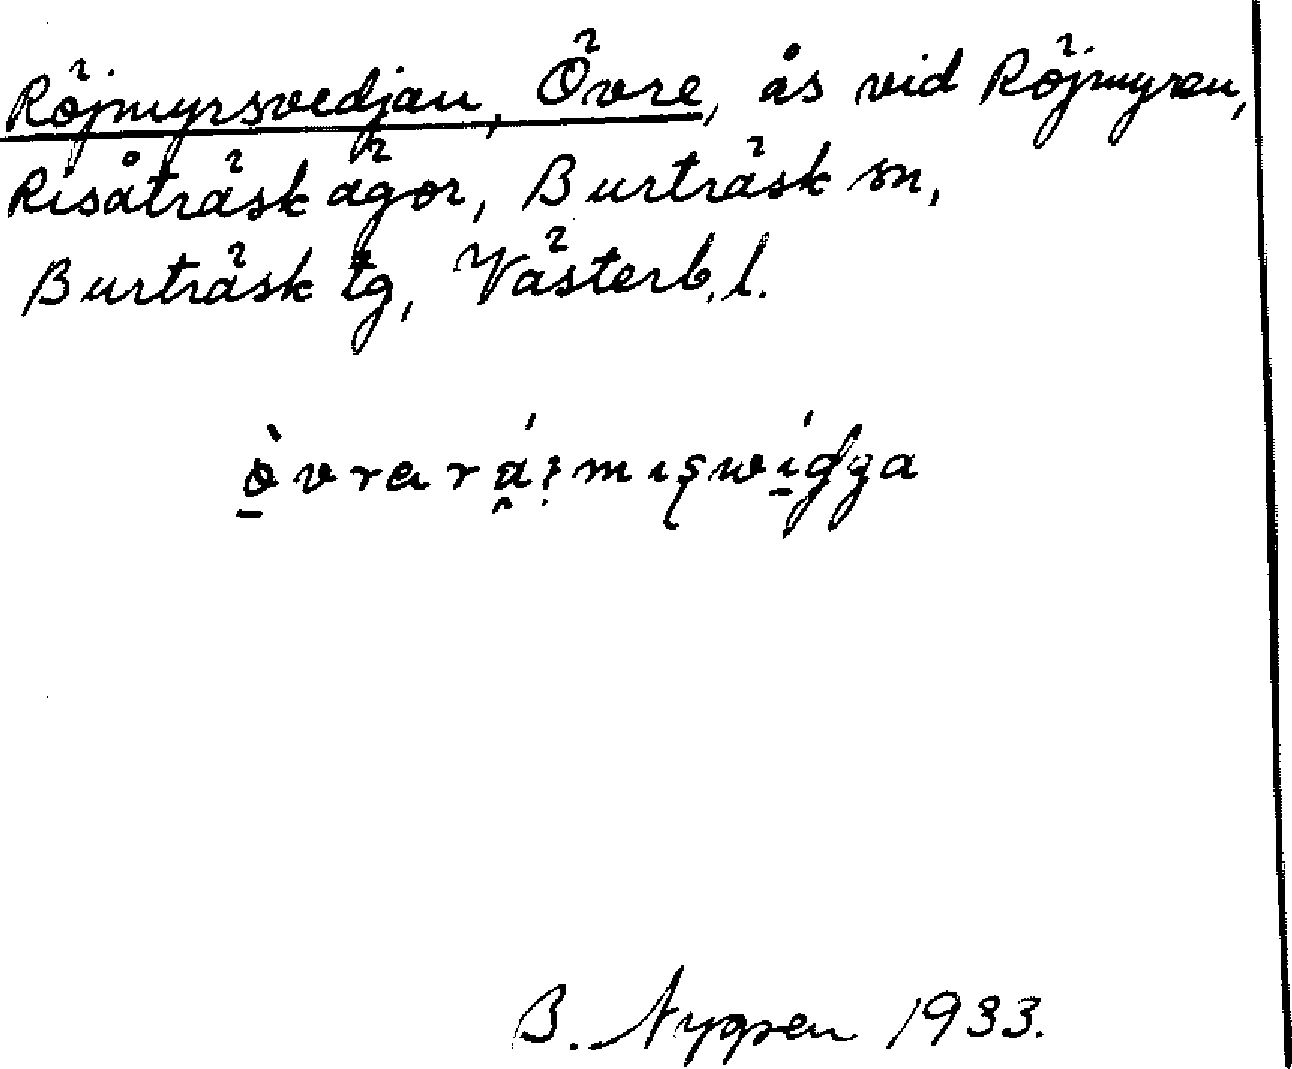 Röjmyrsvedjan, Övre, ås vid Röjmyren,
Risåträsk ägor, Burträsk sn,
Burträsk tg, Västerb. l.
B. Nygren 1933.